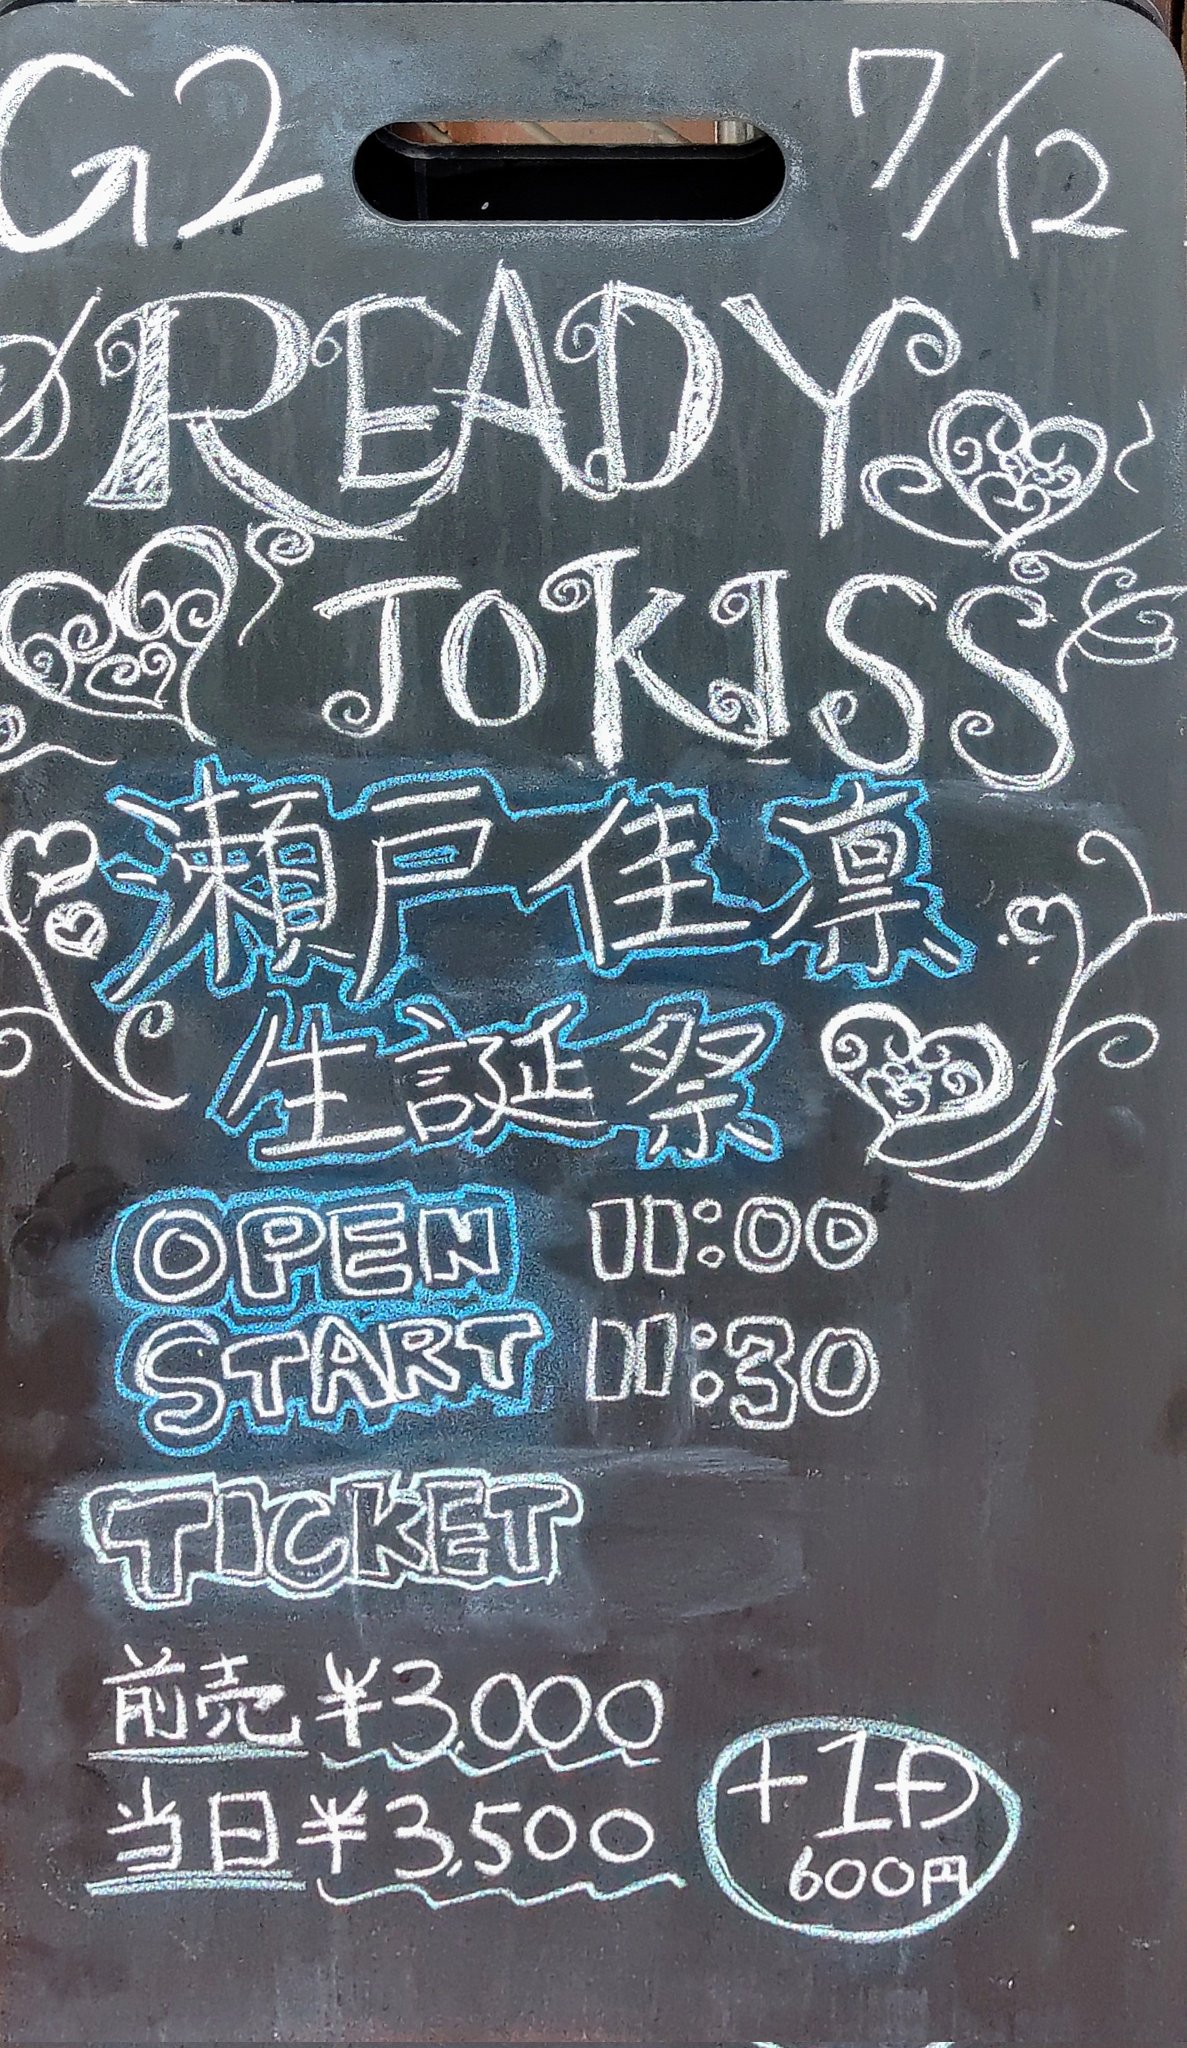 G2 7/12
READY
TO KISS
瀬戸佳凛
生誕祭
OPEN 11:00
START 11:30
TICKET
前売 ¥3,000
当日 ¥3,500
+1D
600円